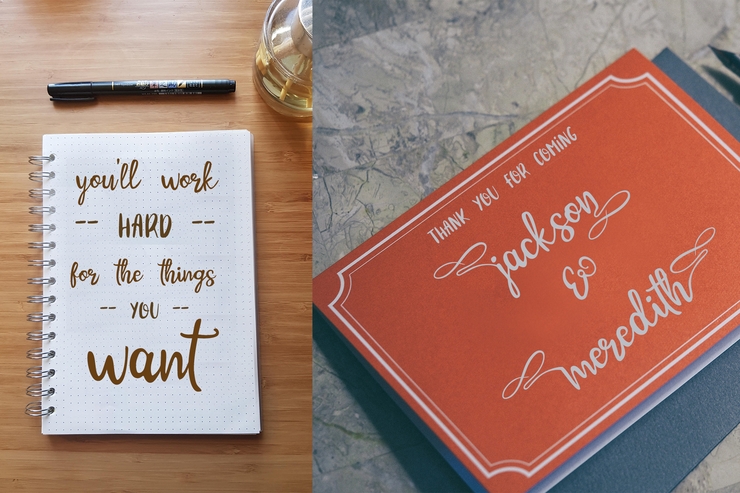 you'll work
-- HARD --
for the things
-- YOU --
want
THANK YOU FOR COMING
jackson
&
meredith